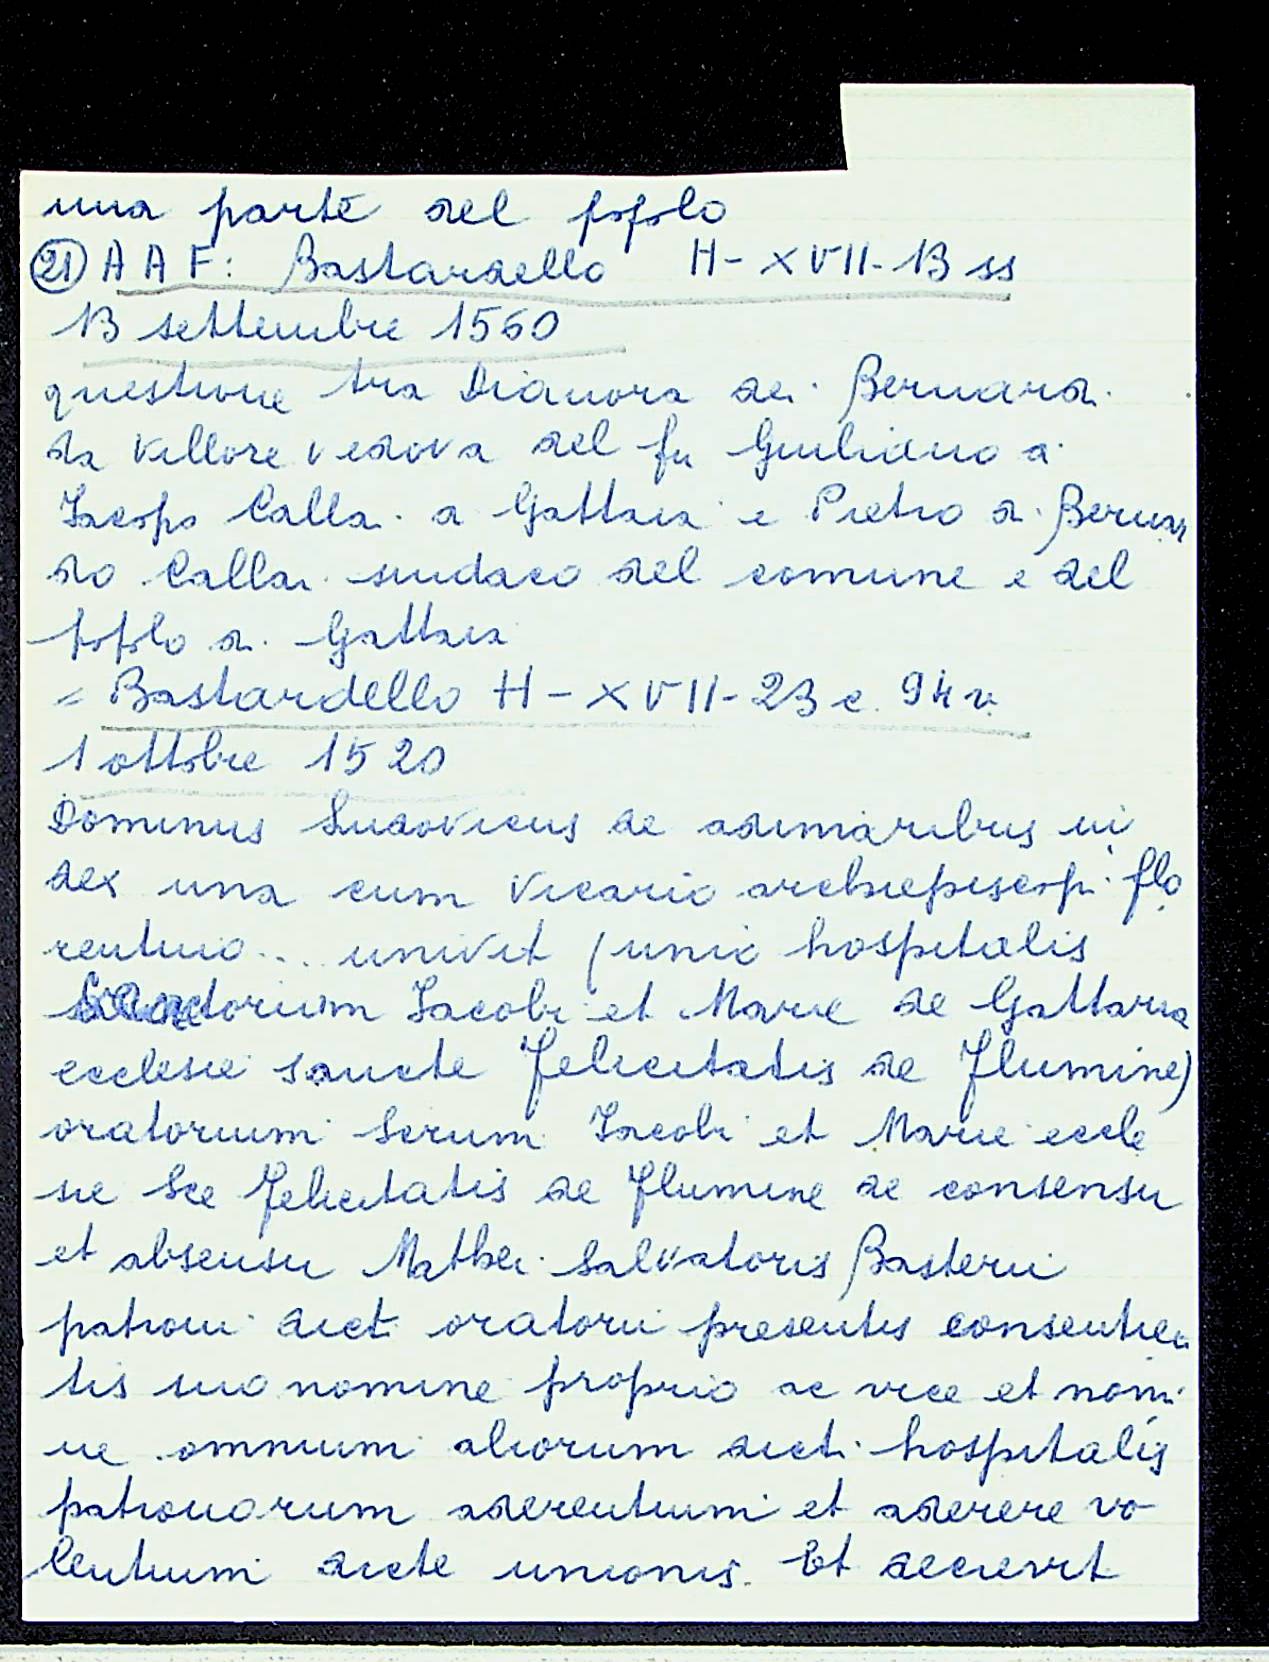 una parte del popolo
(21) A A F: Bastardello H-XVII-13 ss
13 settembre 1560
questione tra Dianora dei Bernardi
da Villore vedova del fu Giuliano di
Iacopo Callai di Gattaia e Pietro di Bernar
do Callai sindaco del comune e del
popolo di Gattaia
= Bastardello H-XVII-23 c. 94 v.
1 ottobre 1520
Dominus Ludovicus de adimaribus iu
dex una cum Vicario archiepiscopi flo
rentino... univit (unio hospitalis
sanctorium Iacobi et Marie de Gattaria
ecclesie sancte Felicitatis de Flumine)
oratorium Scrum Iacobi et Marie eccle
sie Sce Felicitatis de Flumine de consensu
et absensu Mathei Salvatoris Basterii
patroni dicti oratorii presentis consentien
tis suo nomine proprio ac vice et nomi
ne omnium aliorum dicti hospitalis
patronorum aderentium et aderere vo
lentium dicte unionis. Et decrevit